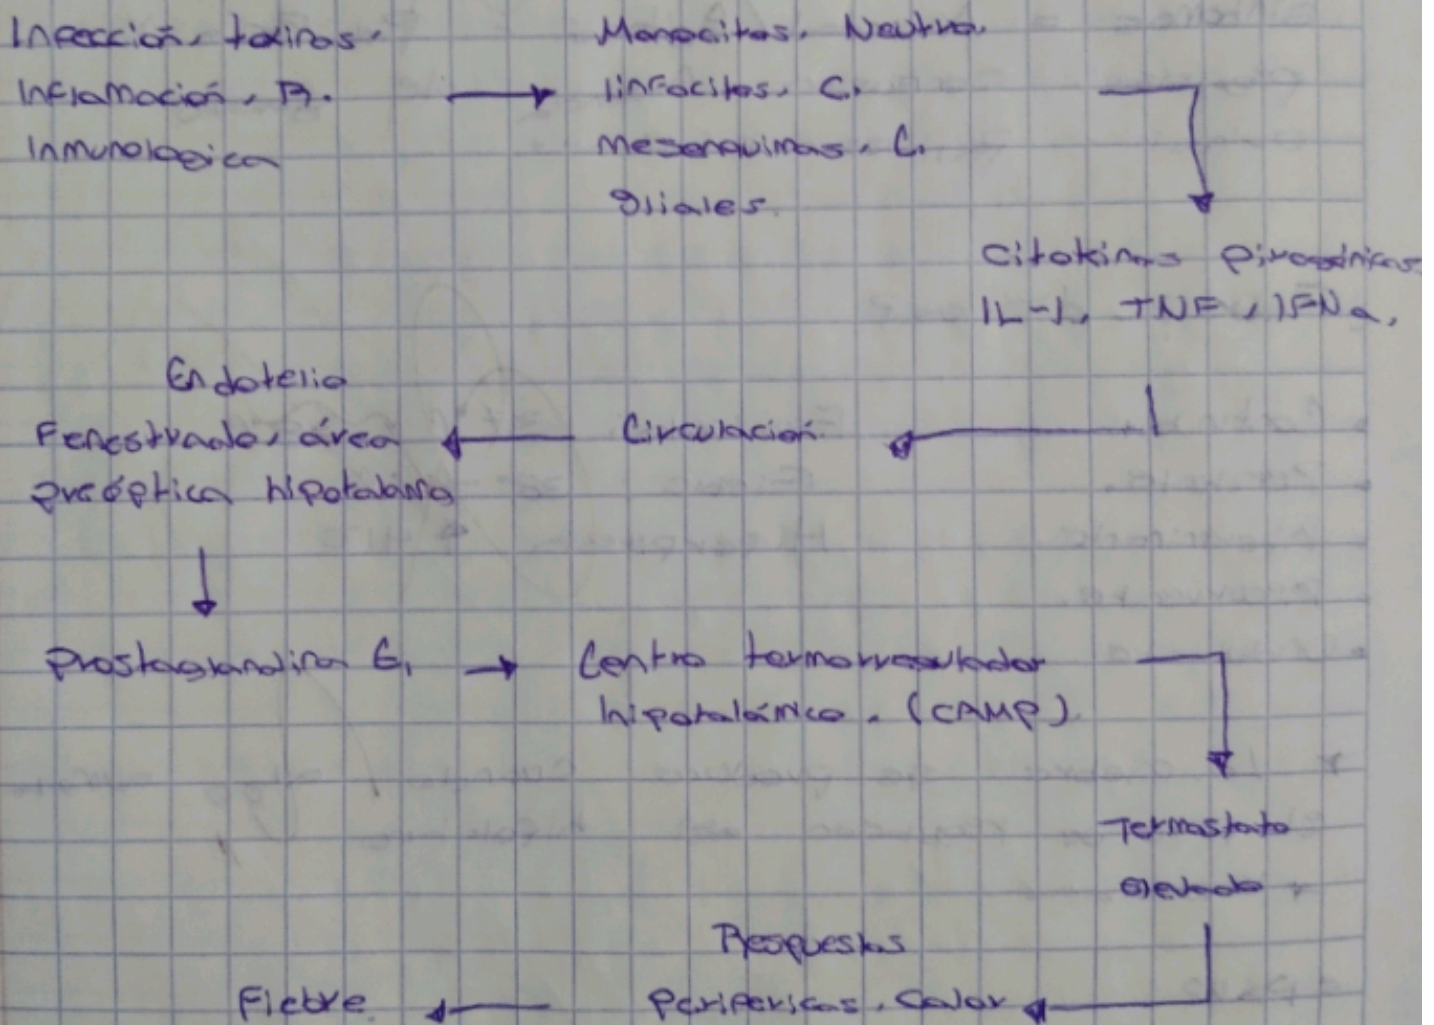 Infección, toxinas.
Inflamación, R.
Inmunologica
Monocitos. Neutro.
linfocitos, C.
mesenquimas. C.
gliales.
Citokinas pirogénicas
IL-1, TNF, IFNα,
Circulación
Endotelio
Fenestrado, área
preóptica hipotalamo
Prostaglandina E,
Centro termorregulador
hipotalámico. (CAMP)
Termostato
elevado
Respuestas
perifericas. Calor
Fiebre